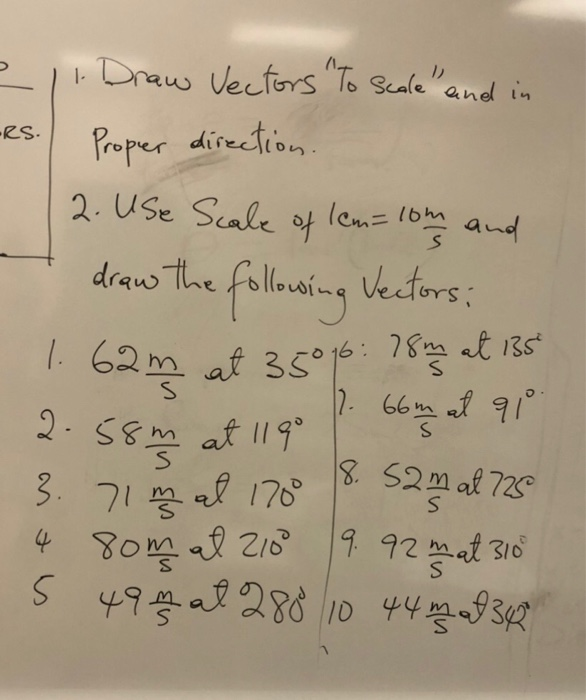 1. Draw Vectors "To Scale" and in
RS.
Proper direction.
2. Use Scale of 1cm = 10 m/s and
draw the following Vectors:
1. 62 m/s at 35°
2. 58 m/s at 119°
3. 71 m/s at 170°
4 80 m/s at 210°
5 49 m/s at 280°
6: 78 m/s at 135°
7. 66 m/s at 91°
8. 52 m/s at 725°
9. 92 m/s at 310°
10 44 m/s at 342°